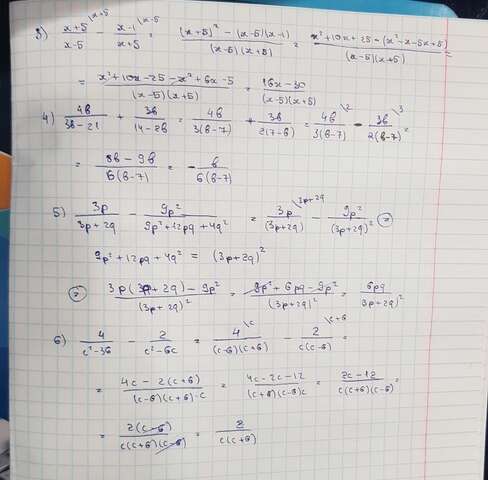 3) \frac{x+5}{x-5}^{\backslash x+5} - \frac{x-1}{x+5}^{\backslash x-5} = \frac{(x+5)^2 - (x-5)(x-1)}{(x-5)(x+5)} = \frac{x^2+10x+25-(x^2-x-5x+5)}{(x-5)(x+5)} =
= \frac{x^2+10x-25-x^2+6x-5}{(x-5)(x+5)} = \frac{16x-30}{(x-5)(x+5)}
4) \frac{4b}{3b-21} + \frac{3b}{14-2b} = \frac{4b}{3(b-7)} + \frac{3b}{2(7-b)} = \frac{4b}{3(b-7)}^{\backslash 2} - \frac{3b}{2(b-7)}^{\backslash 3} =
= \frac{8b-9b}{6(b-7)} = -\frac{b}{6(b-7)}
5) \frac{3p}{3p+2q} - \frac{9p^2}{9p^2+12pq+4q^2} = \frac{3p}{(3p+2q)}^{\backslash 3p+2q} - \frac{9p^2}{(3p+2q)^2} =
9p^2+12pq+4q^2 = (3p+2q)^2
= \frac{3p(3p+2q)-9p^2}{(3p+2q)^2} = \frac{9p^2+6pq-9p^2}{(3p+2q)^2} = \frac{6pq}{3p+2q)^2}
6) \frac{4}{c^2-36} - \frac{2}{c^2-6c} = \frac{4}{(c-6)(c+6)}^{\backslash c} - \frac{2}{c(c-6)}^{\backslash c+6} =
= \frac{4c-2(c+6)}{(c-6)(c+6)\cdot c} = \frac{4c-2c-12}{(c+6)(c-6)c} = \frac{2c-12}{c(c+6)(c-6)} =
= \frac{2(c-6)}{c(c+6)(c-6)} = \frac{2}{c(c+6)}